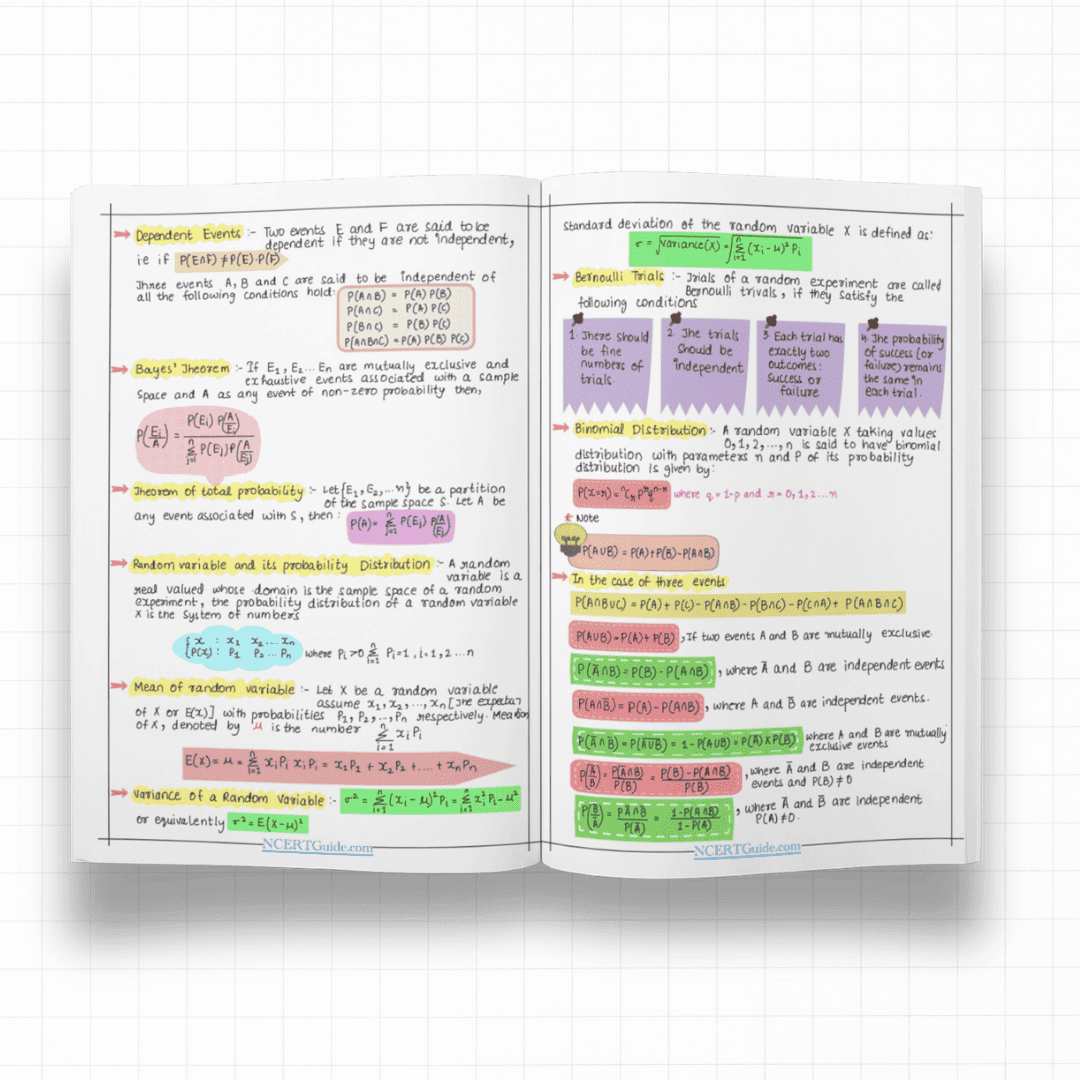 Dependent Events :- Two events E and F are said to be
dependent if they are not independent,
i.e if P(E∩F) ≠ P(E)·P(F)
Three events A, B and C are said to be independent of
all the following conditions hold:
P(A∩B) = P(A) P(B)
P(A∩C) = P(A) P(C)
P(B∩C) = P(B) P(C)
P(A∩B∩C) = P(A) P(B) P(C)
Bayes' Theorem :- If E₁, E₂... En are mutually exclusive and
exhaustive events associated with a sample
Space and A as any event of non-zero probability then,
P(Ei/A) = P(Ei) P(A/Ei) / Σⁿj=1 P(Ej) P(A/Ej)
Theorem of total probability :- Let {E₁, E₂,...n} be a partition
of the sample space S. Let A be
any event associated with S, then : P(A) = Σⁿj=1 P(Ej) P(A/Ej)
Random variable and its probability Distribution :- A random
variable is a
real valued whose domain is the sample space of a random
experiment, the probability distribution of a random variable
X is the system of numbers
{x : x₁ x₂ .... xn
(P(x) : P₁ P₂ ... Pn where Pi>0 Σⁿi=1 Pi=1, i=1,2...n
Mean of random variable :- Let X be a random variable
assume x₁, x₂, ..., xn [The expecta
of X or E(x)] with probabilities P₁, P₂, .., Pn respectively. Mean
of X, denoted by μ is the number Σⁿi=1 xi Pi
E(X) = μ = Σⁿi=1 xi Pi xi Pi = x₁P₁ + x₂P₂ + .... + xnPn
Variance of a Random Variable :- σ² = Σⁿi=1 (xi-μ)² Pi = Σⁿi=1 xi² Pi - μ²
or equivalently σ² = E(X-μ)²
NCERTGuide.com
Standard deviation of the random variable X is defined as:
σ = √variance(X) = √Σⁿi=1 (xi-μ)² Pi
Bernoulli Trials :- Trials of a random experiment are called
Bernoulli trivals, if they satisfy the
following conditions
1. There should
be fine
numbers of
trials.
2. The trials
should be
independent
3. Each trial has
exactly two
outcomes:
success or
failure
4. The probability
of success (or
failure) remains
the same in
each trial.
Binomial Distribution :- A random variable X taking values
0,1,2,...,n is said to have binomial
distribution with parameters n and P of its probability
distribution is given by:
P(x=r) = ⁿCr Pʳqⁿ⁻ʳ where q = 1-p and r = 0,1,2...n
Note
P(A∪B) = P(A)+P(B)-P(A∩B)
In the case of three events
P(A∩B∪C) = P(A) + P(C) - P(A∩B) - P(B∩C) - P(C∩A) + P(A∩B∩C)
P(A∪B) = P(A)+P(B), If two events A and B are mutually exclusive.
P(Ā∩B) = P(B) - P(A∩B), where Ā and B are independent events
P(A∩B̄) = P(A) - P(A∩B), where A and B̄ are independent events.
P(Ā∩B̄) = P(A∪B) = 1-P(A∪B) = P(Ā)×P(B̄) where A and B are mutually
exclusive events
P(Ā/B) = P(Ā∩B)/P(B) = P(B)-P(A∩B)/P(B), where Ā and B are independent
events and P(B) ≠ 0
P(B̄/Ā) = PĀ∩B̄)/P(Ā) = 1-P(A∩B)/1-P(A), where Ā and B̄ are independent
P(A) ≠ 0.
NCERTGuide.com